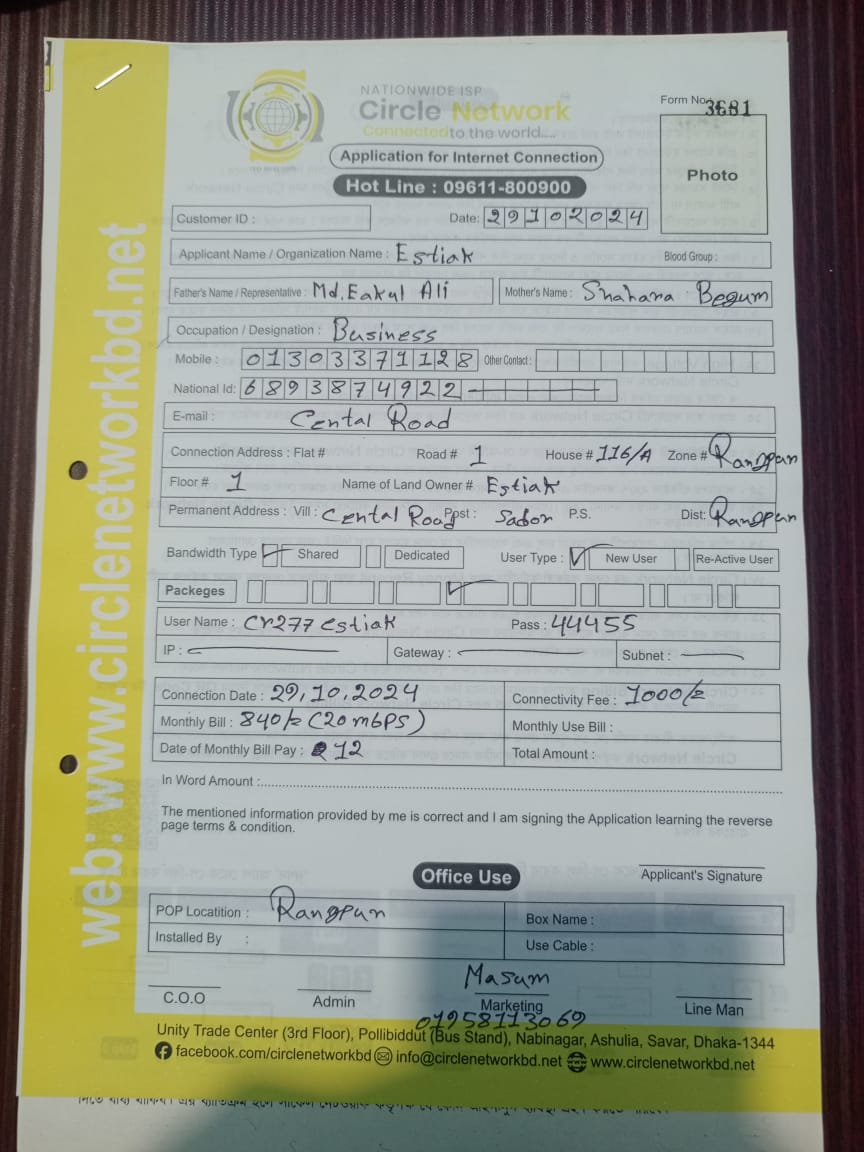 NATIONWIDE ISP
Circle Network
Connected to the world....
Form No. 3681
Application for Internet Connection
Photo
Hot Line : 09611-800900
Customer ID :
Date: 29102024
Applicant Name / Organization Name : Estiak
Blood Group :
Father's Name / Representative : Md. Eakul Ali
Mother's Name : Shahana Begum
Occupation / Designation : Business
Mobile : 01303371128 Other Contact :
National Id: 6893874922
E-mail : Cental Road
Connection Address : Flat # Road # 1 House # 116/A Zone # Rangpur
Floor # 1 Name of Land Owner # Estiak
Permanent Address : Vill : Cental Road Post : Sador P.S. Dist: Rangpur
Bandwidth Type Shared Dedicated User Type : New User Re-Active User
Packeges
User Name : Cr277 estiak Pass : 44455
IP : Gateway : Subnet :
Connection Date : 29,10,2024 Connectivity Fee : 1000/=
Monthly Bill : 840/= (20 mbps) Monthly Use Bill :
Date of Monthly Bill Pay : 12 Total Amount :
In Word Amount :
The mentioned information provided by me is correct and I am signing the Application learning the reverse
page terms & condition.
Office Use
Applicant's Signature
POP Locatition : Rangpur Box Name :
Installed By : Use Cable :
Masum
C.O.O Admin Marketing Line Man
01958113069
Unity Trade Center (3rd Floor), Pollibiddut (Bus Stand), Nabinagar, Ashulia, Savar, Dhaka-1344
facebook.com/circlenetworkbd info@circlenetworkbd.net www.circlenetworkbd.net
web: www.circlenetworkbd.net